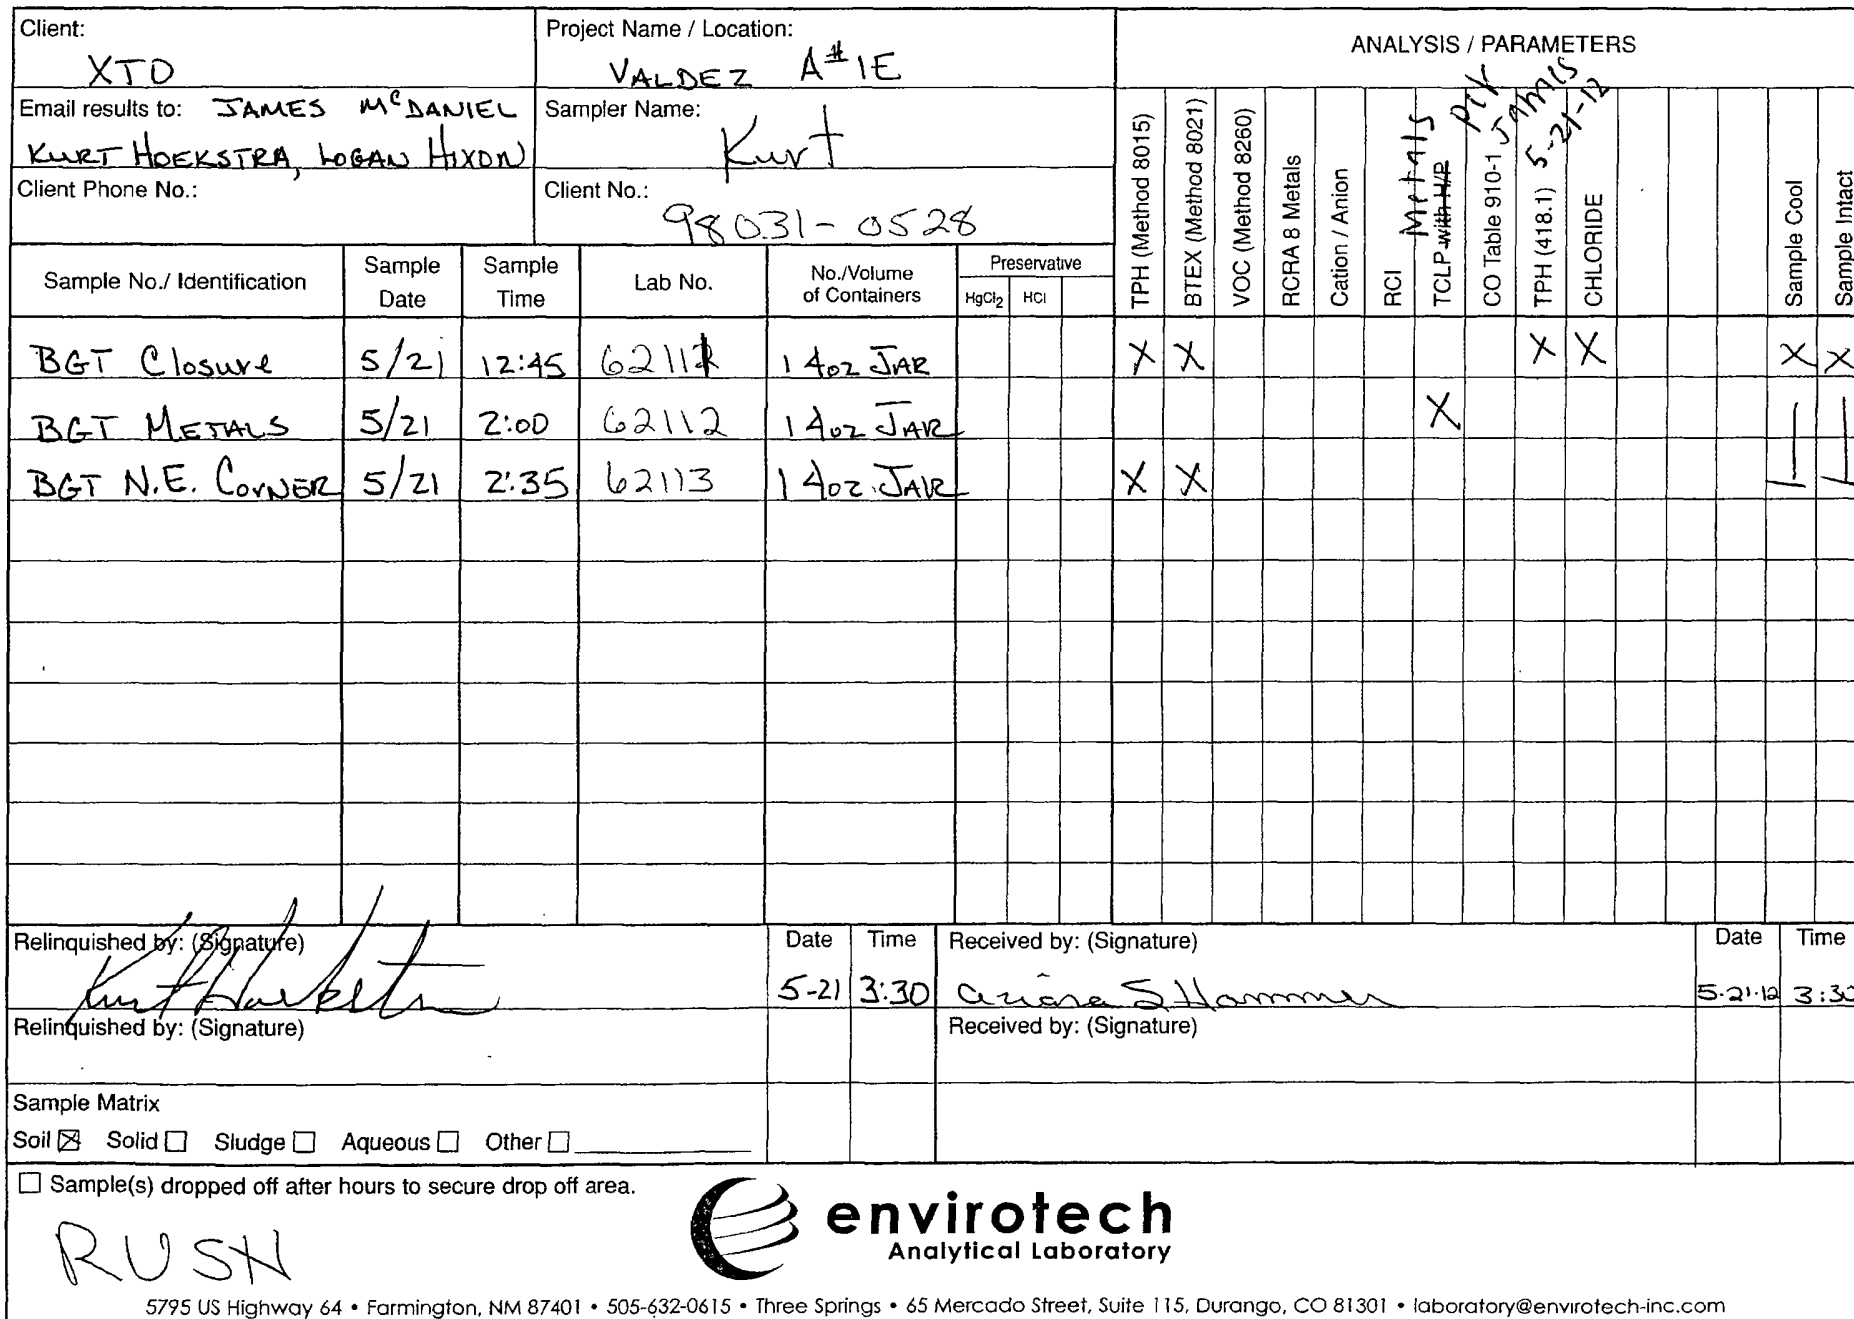 Client:
XTO
Project Name / Location:
VALDEZ A#1E
ANALYSIS / PARAMETERS
Email results to: JAMES McDANIEL
KURT HOEKSTRA, LOGAN HIXON
Sampler Name:
Kurt
Client Phone No.:
Client No.:
98031-0528
Sample No./ Identification
Sample Date
Sample Time
Lab No.
No./Volume of Containers
Preservative
HgCl2
HCl
TPH (Method 8015)
BTEX (Method 8021)
VOC (Method 8260)
RCRA 8 Metals
Cation / Anion
RCI
TCLP with H/P
Metals
CO Table 910-1
TPH (418.1)
CHLORIDE
per James
5-21-12
Sample Cool
Sample Intact
BGT Closure 5/21 12:45 62111 1 4oz JAR X X X X X X
BGT METALS 5/21 2:00 62112 1 4oz JAR X
BGT N.E. CORNER 5/21 2:35 62113 1 4oz. JAR X X
Relinquished by: (Signature)
Kurt Hoekstra
Date
5-21
Time
3:30
Received by: (Signature)
Date
5-21-12
Time
3:30
Relinquished by: (Signature)
Received by: (Signature)
Sample Matrix
Soil ☒ Solid ☐ Sludge ☐ Aqueous ☐ Other ☐
☐ Sample(s) dropped off after hours to secure drop off area.
RUSH
envirotech
Analytical Laboratory
5795 US Highway 64 • Farmington, NM 87401 • 505-632-0615 • Three Springs • 65 Mercado Street, Suite 115, Durango, CO 81301 • laboratory@envirotech-inc.com